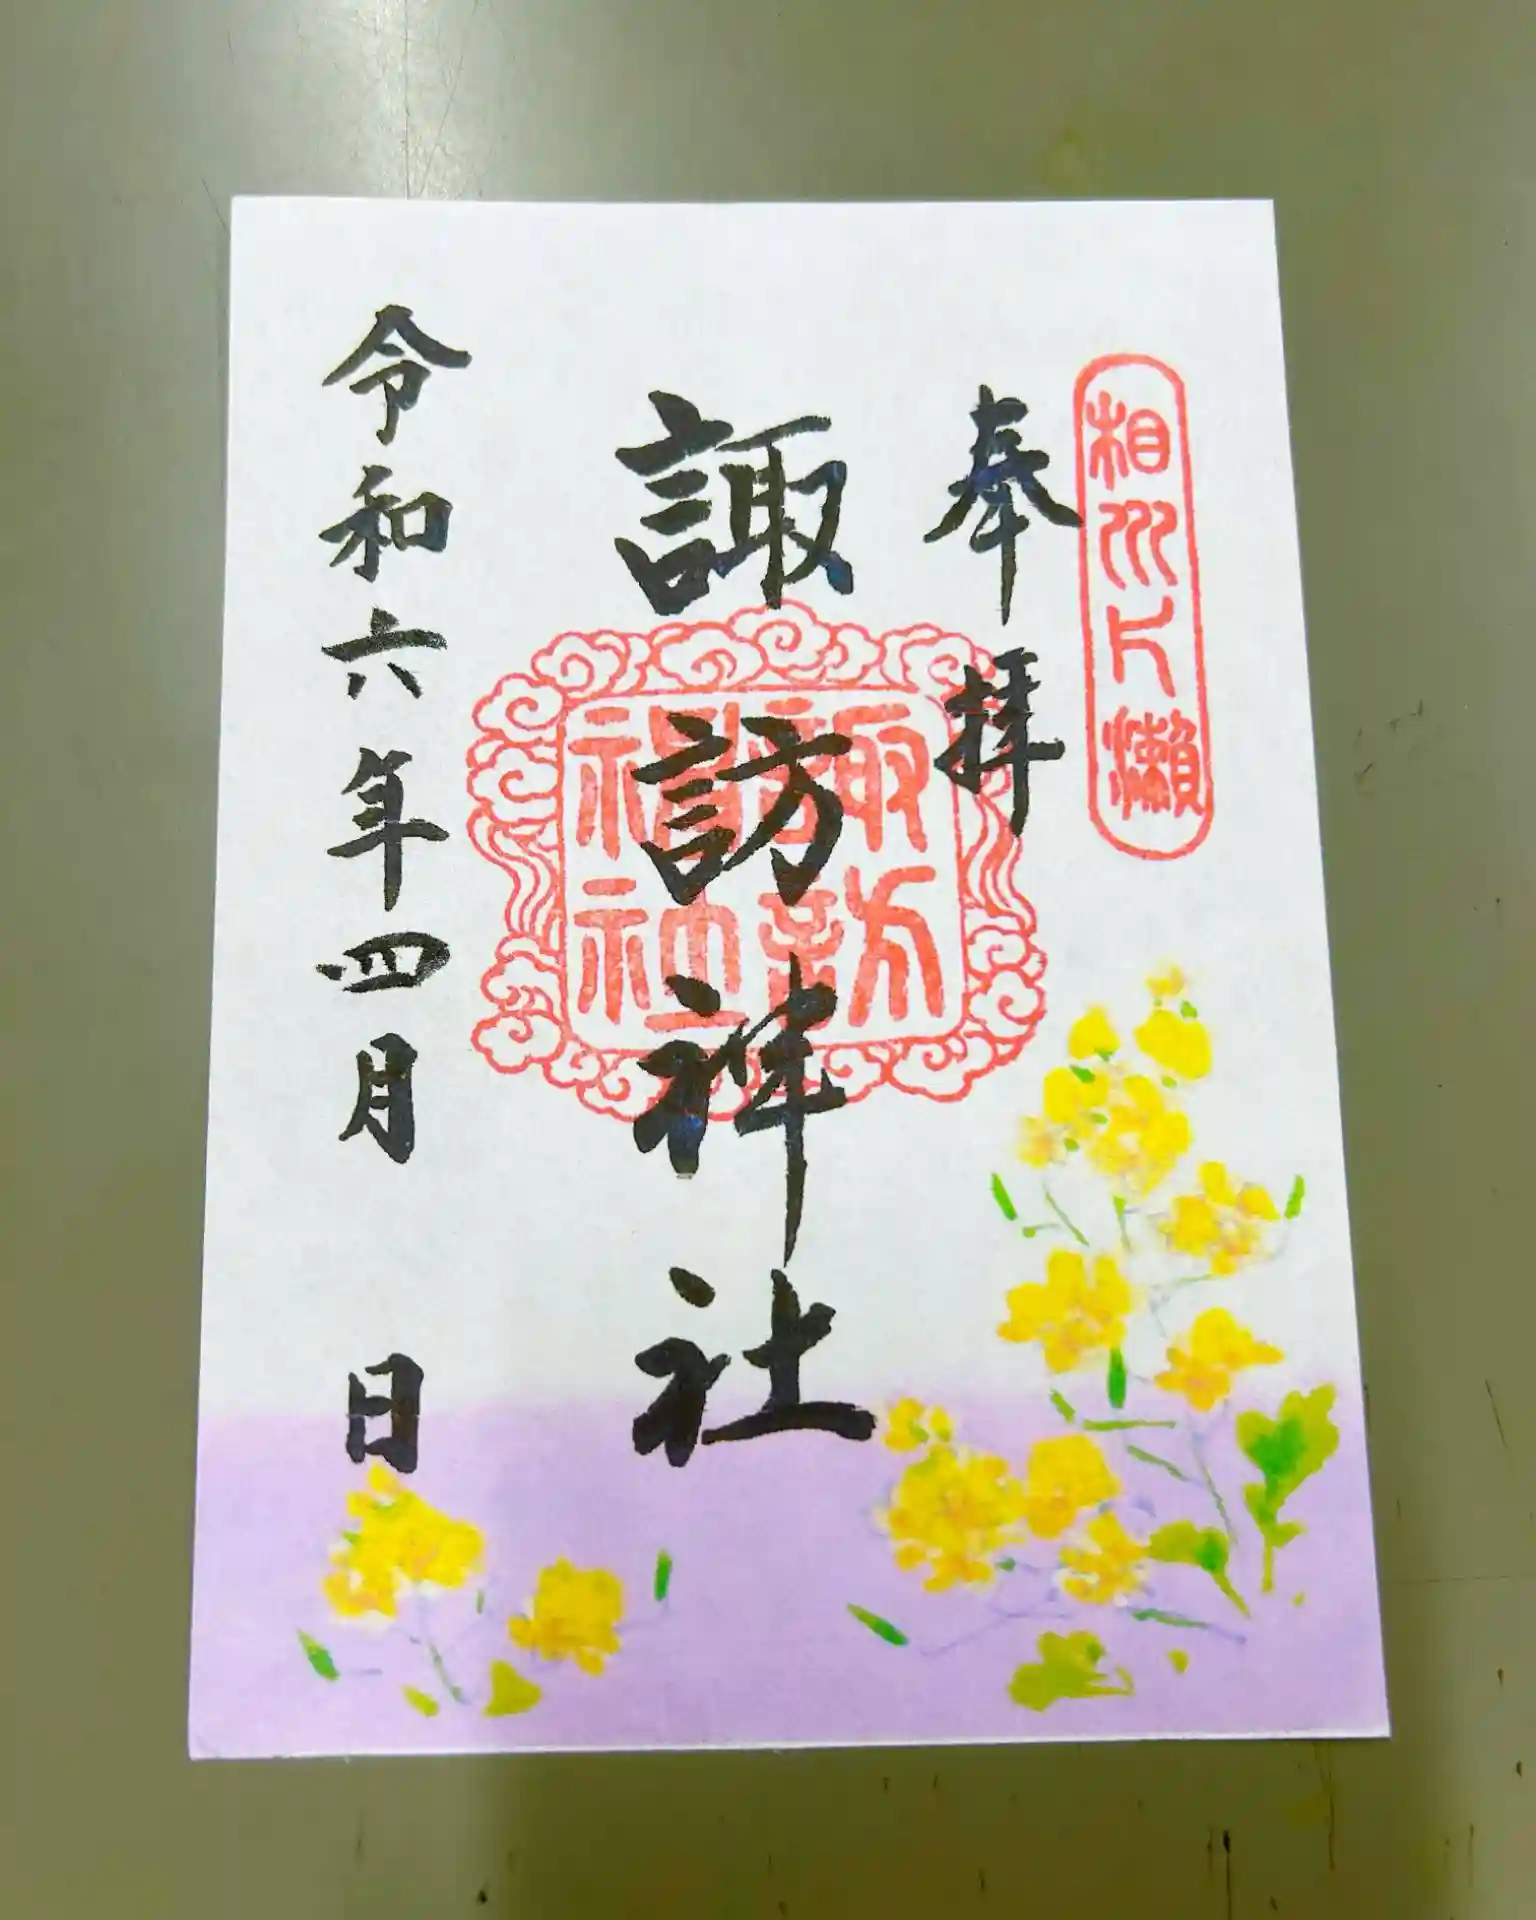 相州片瀬
奉拝
諏訪神社
諏訪
福社
令和六年四月 日